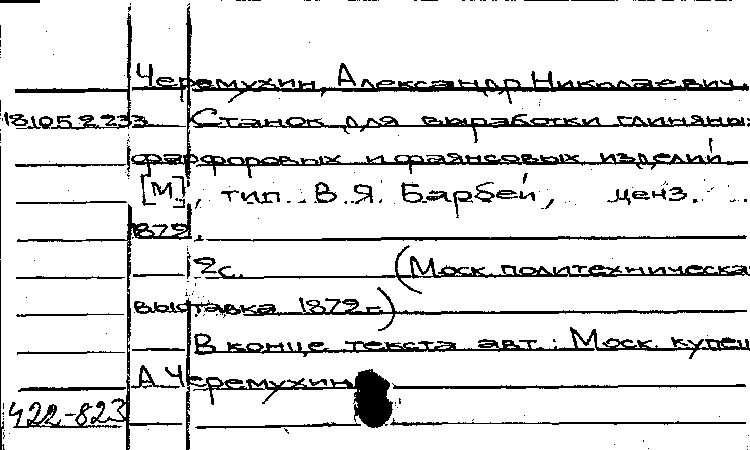 Черемухин, Александр Николаевич.
181052233 Станок для выработки глиняны
фарфоровых и фаянсовых изделий.
[М], тип. В.Я. Барбей, ценз.
1872.
2с. (Моск. политехническа
выставка 1872 г.)
В конце текста авт.: Моск. купец
А Черемухин
422-823